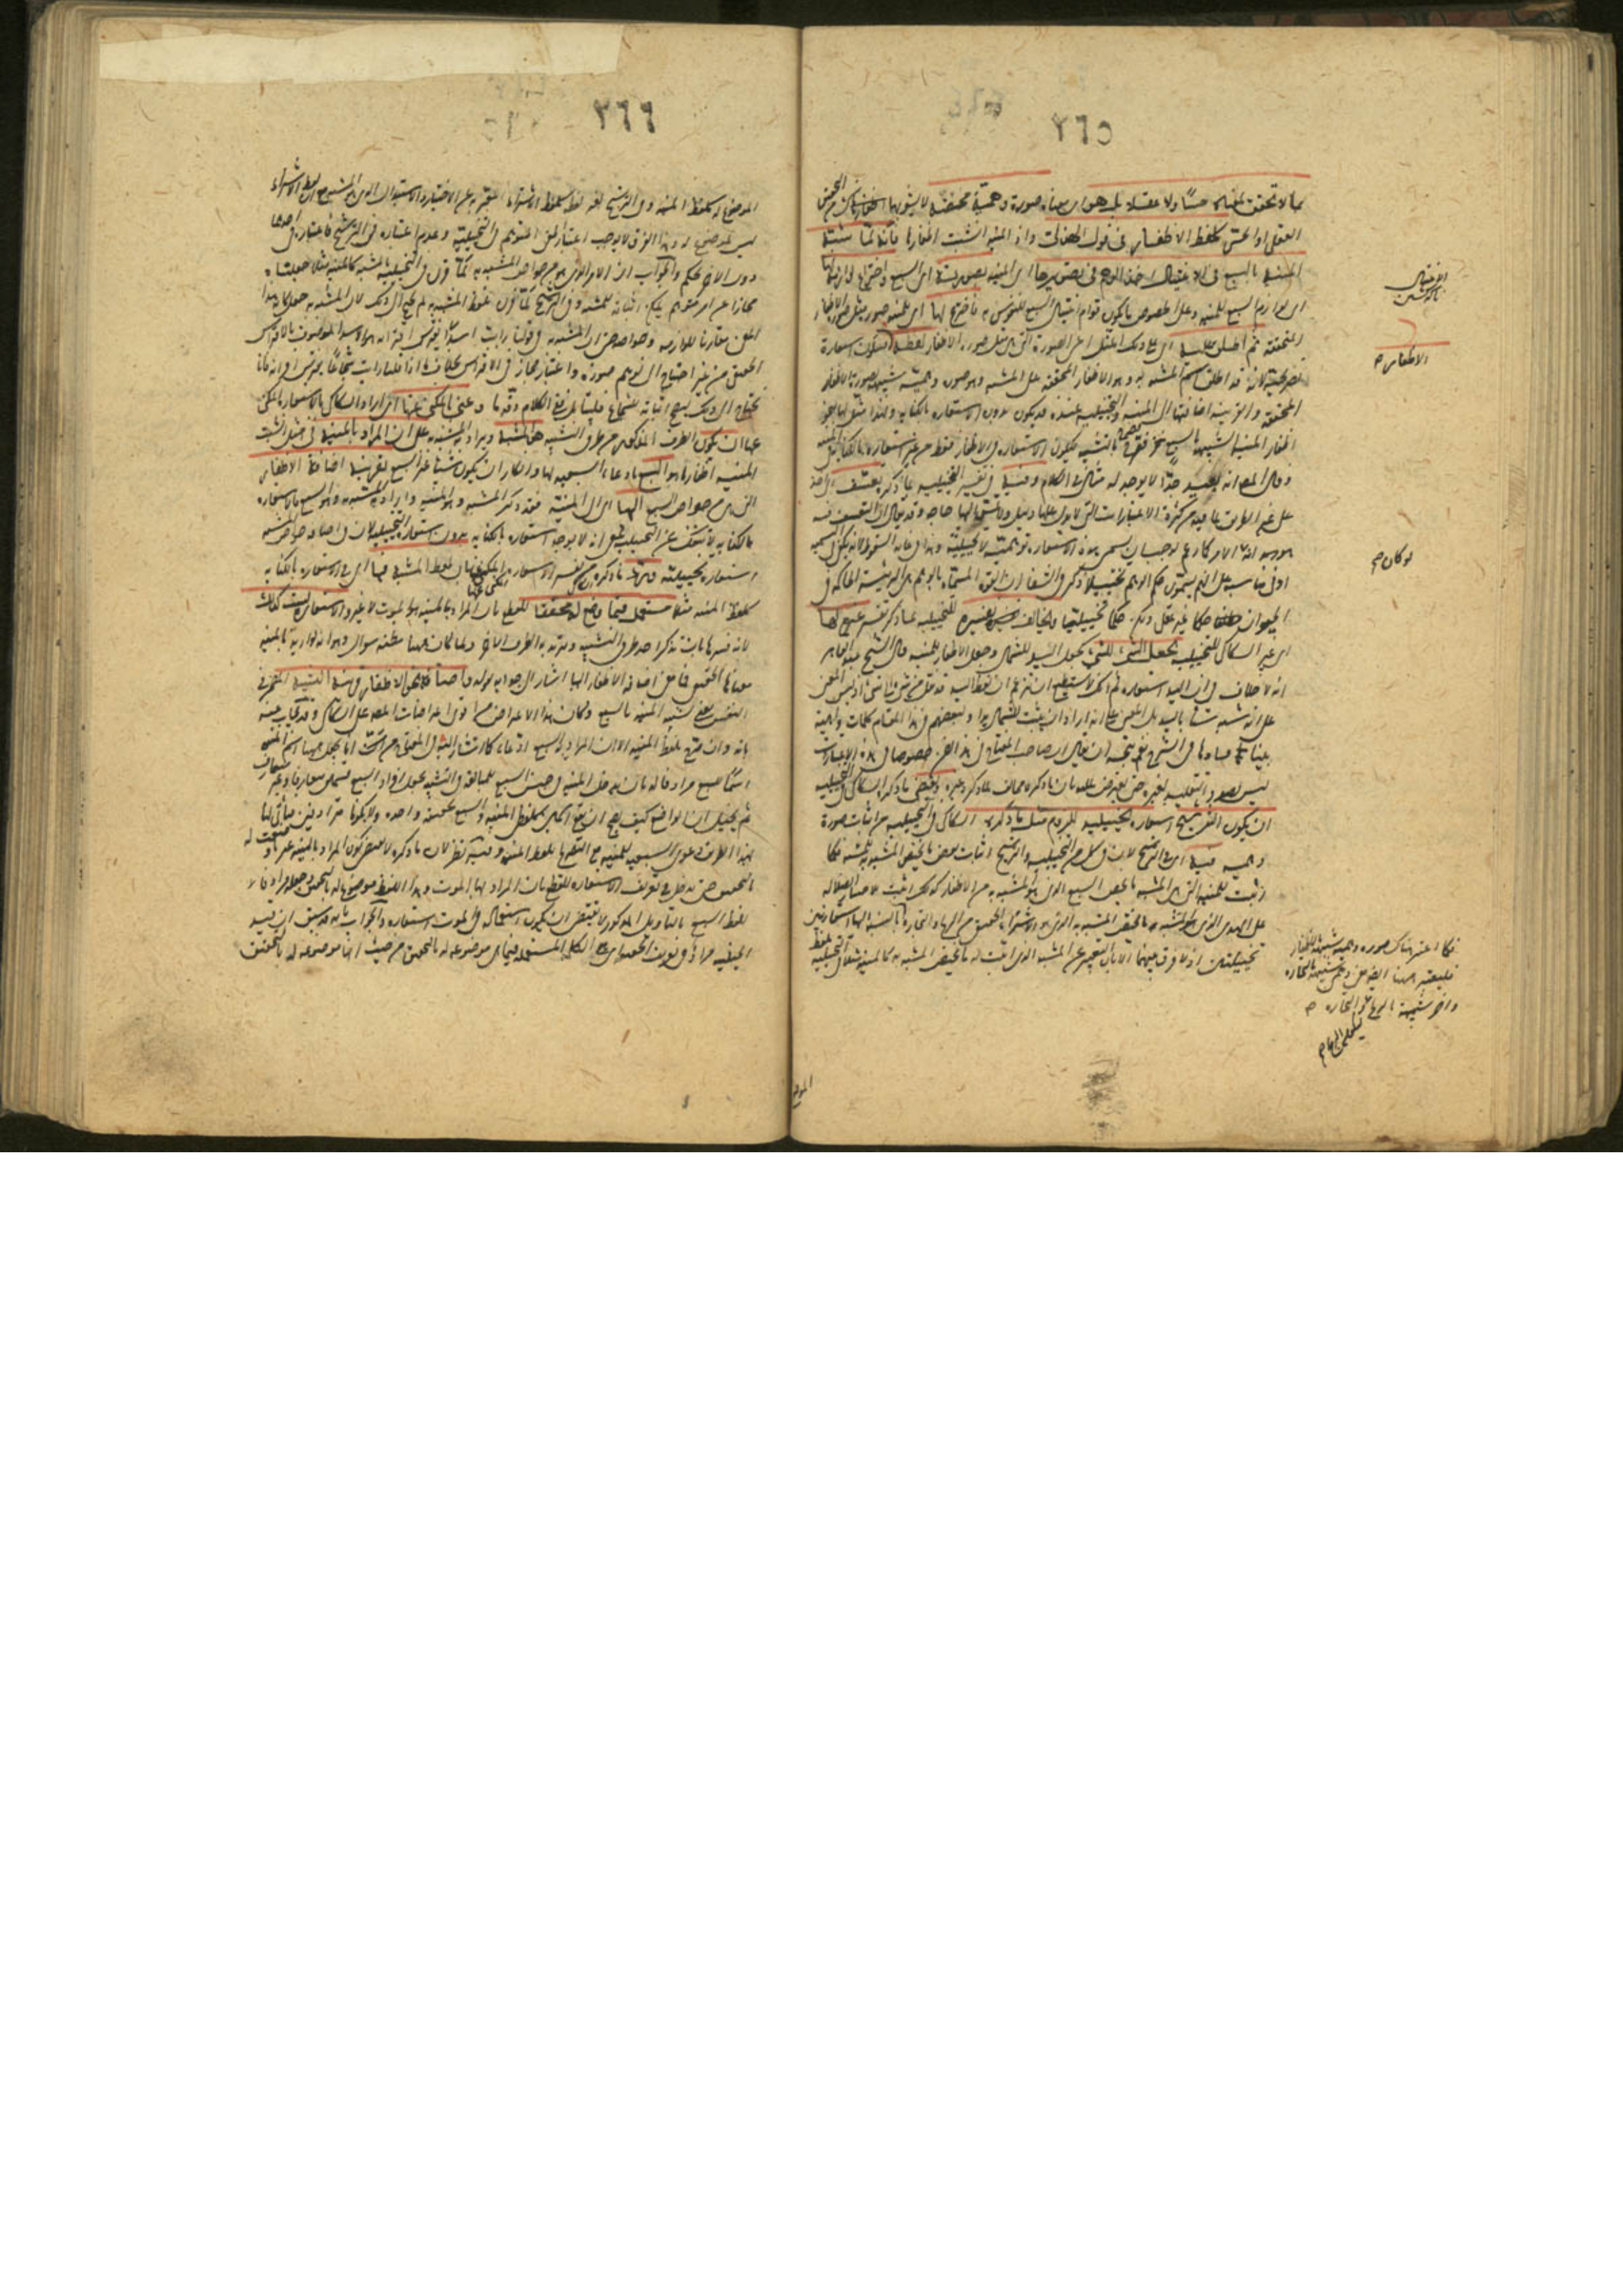 ٢٦٥
بما لا تحقق لمعناه حسا ولا عقلا بل هو اى معناه صورة وهمية محضة لا يشوبها شئ من التحقق
العقلى او الحسى كلفظ الاظفار فى قول الهذلى واذا المنية انشبت اظفارها فانه لما شبه
المنية بالسبع فى الاغتيال اخذ الوهم فى تصويرها اى المنية بصورته اى السبع واختراع لوازمه لها
اى لوازم السبع للمنية وعلى الخصوص ما يكون قوام اغتيال السبع للنفوس به فاخترع لها اى للمنية صورة مثل صورة الاظفار
المحققة ثم اطلق عليه اى على ذلك المثل اعنى الصورة التى هى مثل صورة الاظفار لفظه فيكون استعارة
تصريحية لانه قد اطلق اسم المشبه به وهو الاظفار المحققة على المشبه وهو صورة وهمية شبيهة بصورة الاظفار
المحققة والقرينة اضافتها الى المنية والتخييلية عنده قد يكون بدون الاستعارة بالكناية ولهذا مثل لها بنحو
اظفار المنية الشبيهة بالسبع فصرح بالتشبيه ليكون الاستعارة فى الاظفار فقط من غير استعارة بالكناية فى المنية
وقال المص انه بعيد جدا لا يوجد له مثال فى الكلام وفيه اى فى تفسير التخييلية بما ذكر تعسف اى اخذ
على غير الطريق لما فيه من كثرة الاعتبارات التى لا يدل عليها دليل ولا تمس اليها حاجة وقد يقال ان التعسف فيه
هو انه الامر كما زعم لوجب ان يسمى هذه الاستعارة توهمية لا تخييلية وهذا فى غاية السقوط لانه يكفى فى التسمية
ادنى مناسبة على انهم يسمون حكم الوهم تخييلا ذكر فى الشفا ان القوة المسماة بالوهم هى الرئيسة الحاكمة فى
الحيوان حكما غير عقلى ولكن حكما تخييليا ويخالف تفسيره للتخييلية بما ذكر تفسير غيره لها
اى غير السكاكى للتخييلية بجعل الشئ للشئ كجعل اليد للشمال وجعل الاظفار للمنية قال الشيخ عبد القاهر
انه لا خلاف فى ان اليد استعارة ثم انك لا تستطيع ان تزعم ان لفظ اليد قد نقل عن شئ الى شئ اذ ليس المعنى
على انه شبه شيئا باليد بل المعنى على انه اراد ان يثبت للشمال يدا ولبعضهم فى هذا المقام كلمات واهية
بينا فسادها فى الشرح نعم يتجه ان يقال ان صاحب المفتاح فى هذا الفن خصوصا فى هذه الاعتبارات
ليس بصدد التقليد لغيره حتى يعترض عليه بان ما ذكره مخالف لما ذكره غيره ويقتضى ما ذكره السكاكى فى التخييلية
ان يكون الترشيح استعارة تخييلية للزوم مثل ما ذكره السكاكى فى التخييلية من اثبات صورة
وهمية فيه اى فى الترشيح لان فى كل من التخييلية والترشيح اثبات بعض ما يخص المشبه به للمشبه فكما
اثبت للمنية التى هى المشبه ما يخص السبع الذى هو المشبه به من الاظفار كذلك اثبت لاختيار الضلالة
على الهدى الذى هو المشبه ما يخص المشبه به الذى هو الاشتراء الحقيقى من الربح والتجارة
تخييليتين اذ لا فرق بينهما الا بان التعبير عن المشبه الذى اثبت له ما يخص المشبه به كالمنية مثلا فى التخييلية بلفظ
الاغتيال
الاظفار صح
لو كان صح
فكما اعتبر هناك صورة وهمية شبيهة بالاظفار
فليعتبر ههنا ايضا معنى وهمى شبيه بالتجارة
واخر شبيه بالربح
٢٦٦
الموضوع له كلفظ المنية وفى الترشيح بغير لفظه كلفظ الاشتراء المعبر به عن الاختيار والاستبدال الذى هو المشبه مع ان لفظ الاشتراء
ليس بموضوع له وهذا الفرق لا يوجب اعتبار المعنى المتوهم فى التخييلية وعدم اعتباره فى الترشيح فاعتباره فى احدهما
دون الاخر تحكم والجواب ان الامر الذى هو من خواص المشبه به لما قرن فى التخييلية بالمشبه كالمنية مثلا جعلناه
مجازا عن امر متوهم يمكن اثباته للمشبه وفى الترشيح لما قرن بلفظ المشبه به لم يحتج الى ذلك لان المشبه به جعل كانه هذا
المعنى مقارنا للوازمه وخواصه حتى ان المشبه به فى قولنا رايت اسدا يفترس اقرانه هو الاسد الموصوف بالافتراس
الحقيقى من غير احتياج الى توهم صورة واعتبار مجاز فى الافتراس بخلاف ما اذا قلنا رايت شجاعا يفترس اقرانه فانا
نحتاج الى ذلك ليصح اثباته للشجاع فليتأمل ففى الكلام دقة ما وعنى بالمكنى عنها اى اراد السكاكى بالاستعارة المكنى
عنها ان يكون الطرف المذكور من طرفى التشبيه هو المشبه ويراد به المشبه به على ان المراد بالمنية فى مثل انشبت
المنية اظفارها هو السبع بادعاء السبعية لها وانكار ان يكون شيئا غير السبع بقرينة اضافة الاظفار
التى هى من خواص السبع اليها اى الى المنية فقد ذكر المشبه وهو المنية واراد المشبه به وهو السبع فالاستعارة
بالكناية لا تنفك عن التخييلية بمعنى انه لا توجد استعارة بالكناية بدون استعارة التخييلية لان فى اضافة خواص المشبه به
استعارة تخييلية ورد ما ذكره من تفسير الاستعارة المكنى عنها بان لفظ المشبه فيها اى فى الاستعارة بالكناية
كلفظ المنية مثلا مستعمل فيما وضع له تحقيقا للقطع بان المراد بالمنية هو الموت لا غير والاستعارة ليست كذلك
لانه فسرها بان تذكر احد طرفى التشبيه وتريد به الطرف الاخر ولما كان ههنا مظنة سؤال وهو انه لو اريد بالمنية
معناها الحقيقى فما معنى اضافة الاظفار اليها اشار الى جوابه بقوله واضافة نحو الاظفار قرينة التشبيه المضمر فى
النفس يعنى تشبيه المنية بالسبع وكان هذا الاعتراض من اقوى اعتراضات المص على السكاكى وقد يجاب عنه
بانه وان صرح بلفظ المنية الا ان المراد به السبع ادعاء كما اشار اليه فى المفتاح من انا نجعل ههنا اسم المنية
اسما للسبع مرادفا له بان ندخل المنية فى جنس السبع للمبالغة فى التشبيه بجعل افراد السبع قسمين متعارفا وغير متعارف
ثم يخيل ان الواضع كيف يصح ان يضع اسمين كلفظى المنية والسبع لحقيقة واحدة ولا يكونا مترادفين فيتأتى لنا
بهذا الطريق دعوى السبعية للمنية مع التصريح بلفظ المنية وفيه نظر لان ما ذكره لا يقتضى كون المراد بالمنية غير ما وضعت له
بالتحقيق حتى يدخل فى تعريف الاستعارة للقطع بان المراد بها الموت وهذا اللفظ موضوع له بالتحقيق وجعله مرادفا لا
للفظ السبع بالتأويل المذكور لا يقتضى ان يكون استعماله فى الموت استعارة والجواب بانه قد سبق ان قيد
الحيثية مراد فى تعريف الحقيقة اى هى الكلمة المستعملة فيما هى موضوعة له بالتحقيق من حيث انها موضوعة له بالتحقيق